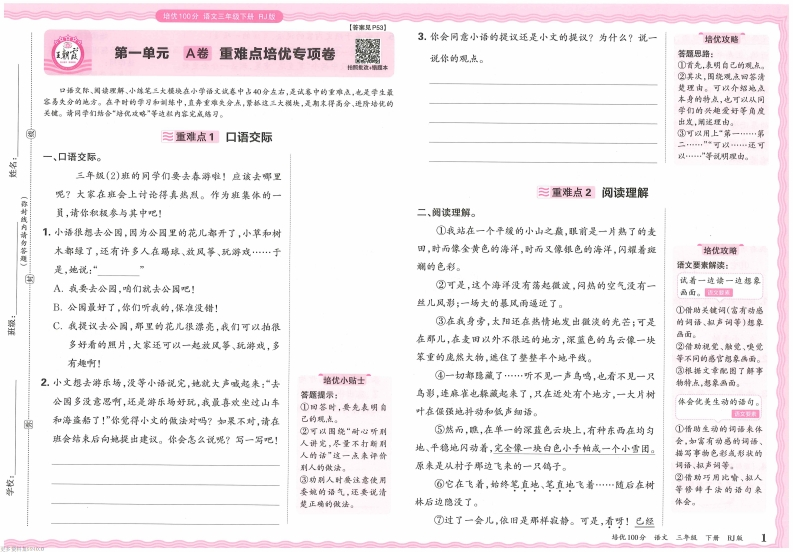 培优100分 语文三年级下册 RJ版
【答案见P53】
王朝霞
第一单元 A卷 重难点培优专项卷
拍照批改+错题本
口语交际、阅读理解、小练笔三大模块在小学语文试卷中占40分左右,是试卷中的重难点,也是学生最
容易失分的地方。在平时的学习和训练中,直奔重难失分点,紧抓这三大模块,是期末得高分、进阶培优的
关键。请同学们结合“培优攻略”等边栏内容完成练习。
重难点1 口语交际
一、口语交际。
三年级(2)班的同学们要去春游啦!应该去哪里
呢?大家在班会上讨论得真热烈。作为班集体的一
员,请你积极参与其中吧!
1. 小语很想去公园,因为公园里的花儿都开了,小草和树
木都绿了,还有许多人在踢球、放风筝、玩游戏……于
是,她说:“________”
A. 我要去公园,咱们就去公园吧!
B. 公园最好了,你们听我的,保准没错!
C. 我提议去公园,那里的花儿很漂亮,我们可以拍很
多好看的照片,大家还可以一起放风筝、玩游戏,多
有趣啊!
2. 小文想去游乐场,没等小语说完,她就大声喊起来:“去
公园多没意思啊,还是游乐场好玩,我最喜欢坐过山车
和海盗船了!”你觉得小文的做法对吗?如果不对,请在
班会结束后向她提出建议。你会怎么说呢?写一写吧!
培优小贴士
答题提示:
①回答时,要先表明自
己的观点。
②可以围绕“耐心听别
人讲完,尽量不打断别
人的话”这一点来评价
别人的做法。
③劝别人时要注意使用
委婉的语气,还要说清
楚正确的做法。
姓名:
班级:
学校:
(弥封线内请勿答题)
线
封
密
3. 你会同意小语的提议还是小文的提议?为什么?说一
说你的观点。
培优攻略
答题思路:
①首先,表明自己的观点。
②其次,围绕观点回答清
楚理由。可以介绍地点
本身的特点,也可以从同
学们的兴趣爱好等角度
出发,阐述理由。
③可以用上“第一……第
二……”“可以……还可
以……”等说明理由。
重难点2 阅读理解
二、阅读理解。
①我站在一个平缓的小山之巅,眼前是一片熟了的麦
田,时而像金黄色的海洋,时而又像银色的海洋,闪耀着斑
斓的色彩。
②可是,这个海洋没有荡起微波,闷热的空气没有一
丝儿风影;一场大的暴风雨逼近了。
③在我身旁,太阳还在热情地发出微淡的光芒;可是
在那儿,在麦田以外不很远的地方,深蓝色的乌云像一块
笨重的庞然大物,遮住了整整半个地平线。
④一切都隐藏了……听不见一声鸟鸣,也看不见一只
鸟影,连麻雀也躲藏起来了,只在近处有个地方,一大片树
叶在倔强地抖动和低声细语。
⑤然而,瞧,在单一的深蓝色云块上,有种东西在均匀
地、平稳地闪动着,完全像一块白色小手帕或一个小雪团。
原来是从村子那边飞来的一只鸽子。
⑥它在飞着,始终笔直地、笔直地飞着……随后在树
林后边隐没了。
⑦过了一会儿,依旧是那样寂静。可是,看呀!已经
培优攻略
语文要素解读:
试着一边读一边想象
画面。 语文要素
①借助关键词(富有动感
的词语、拟声词等)想象
画面。
②借助视觉、触觉、嗅觉
等不同的感官想象画面。
③根据文章配图了解事
物特点,想象画面。
体会优美生动的语句。
语文要素
①借助生动的词语来体
会,如富有动感的词语、
描写事物色彩或形状的
词语、拟声词等。
②借助巧用比喻、拟人
等修辞手法的语句来
体会。
培优100分 语文 三年级 下册 RJ版 1